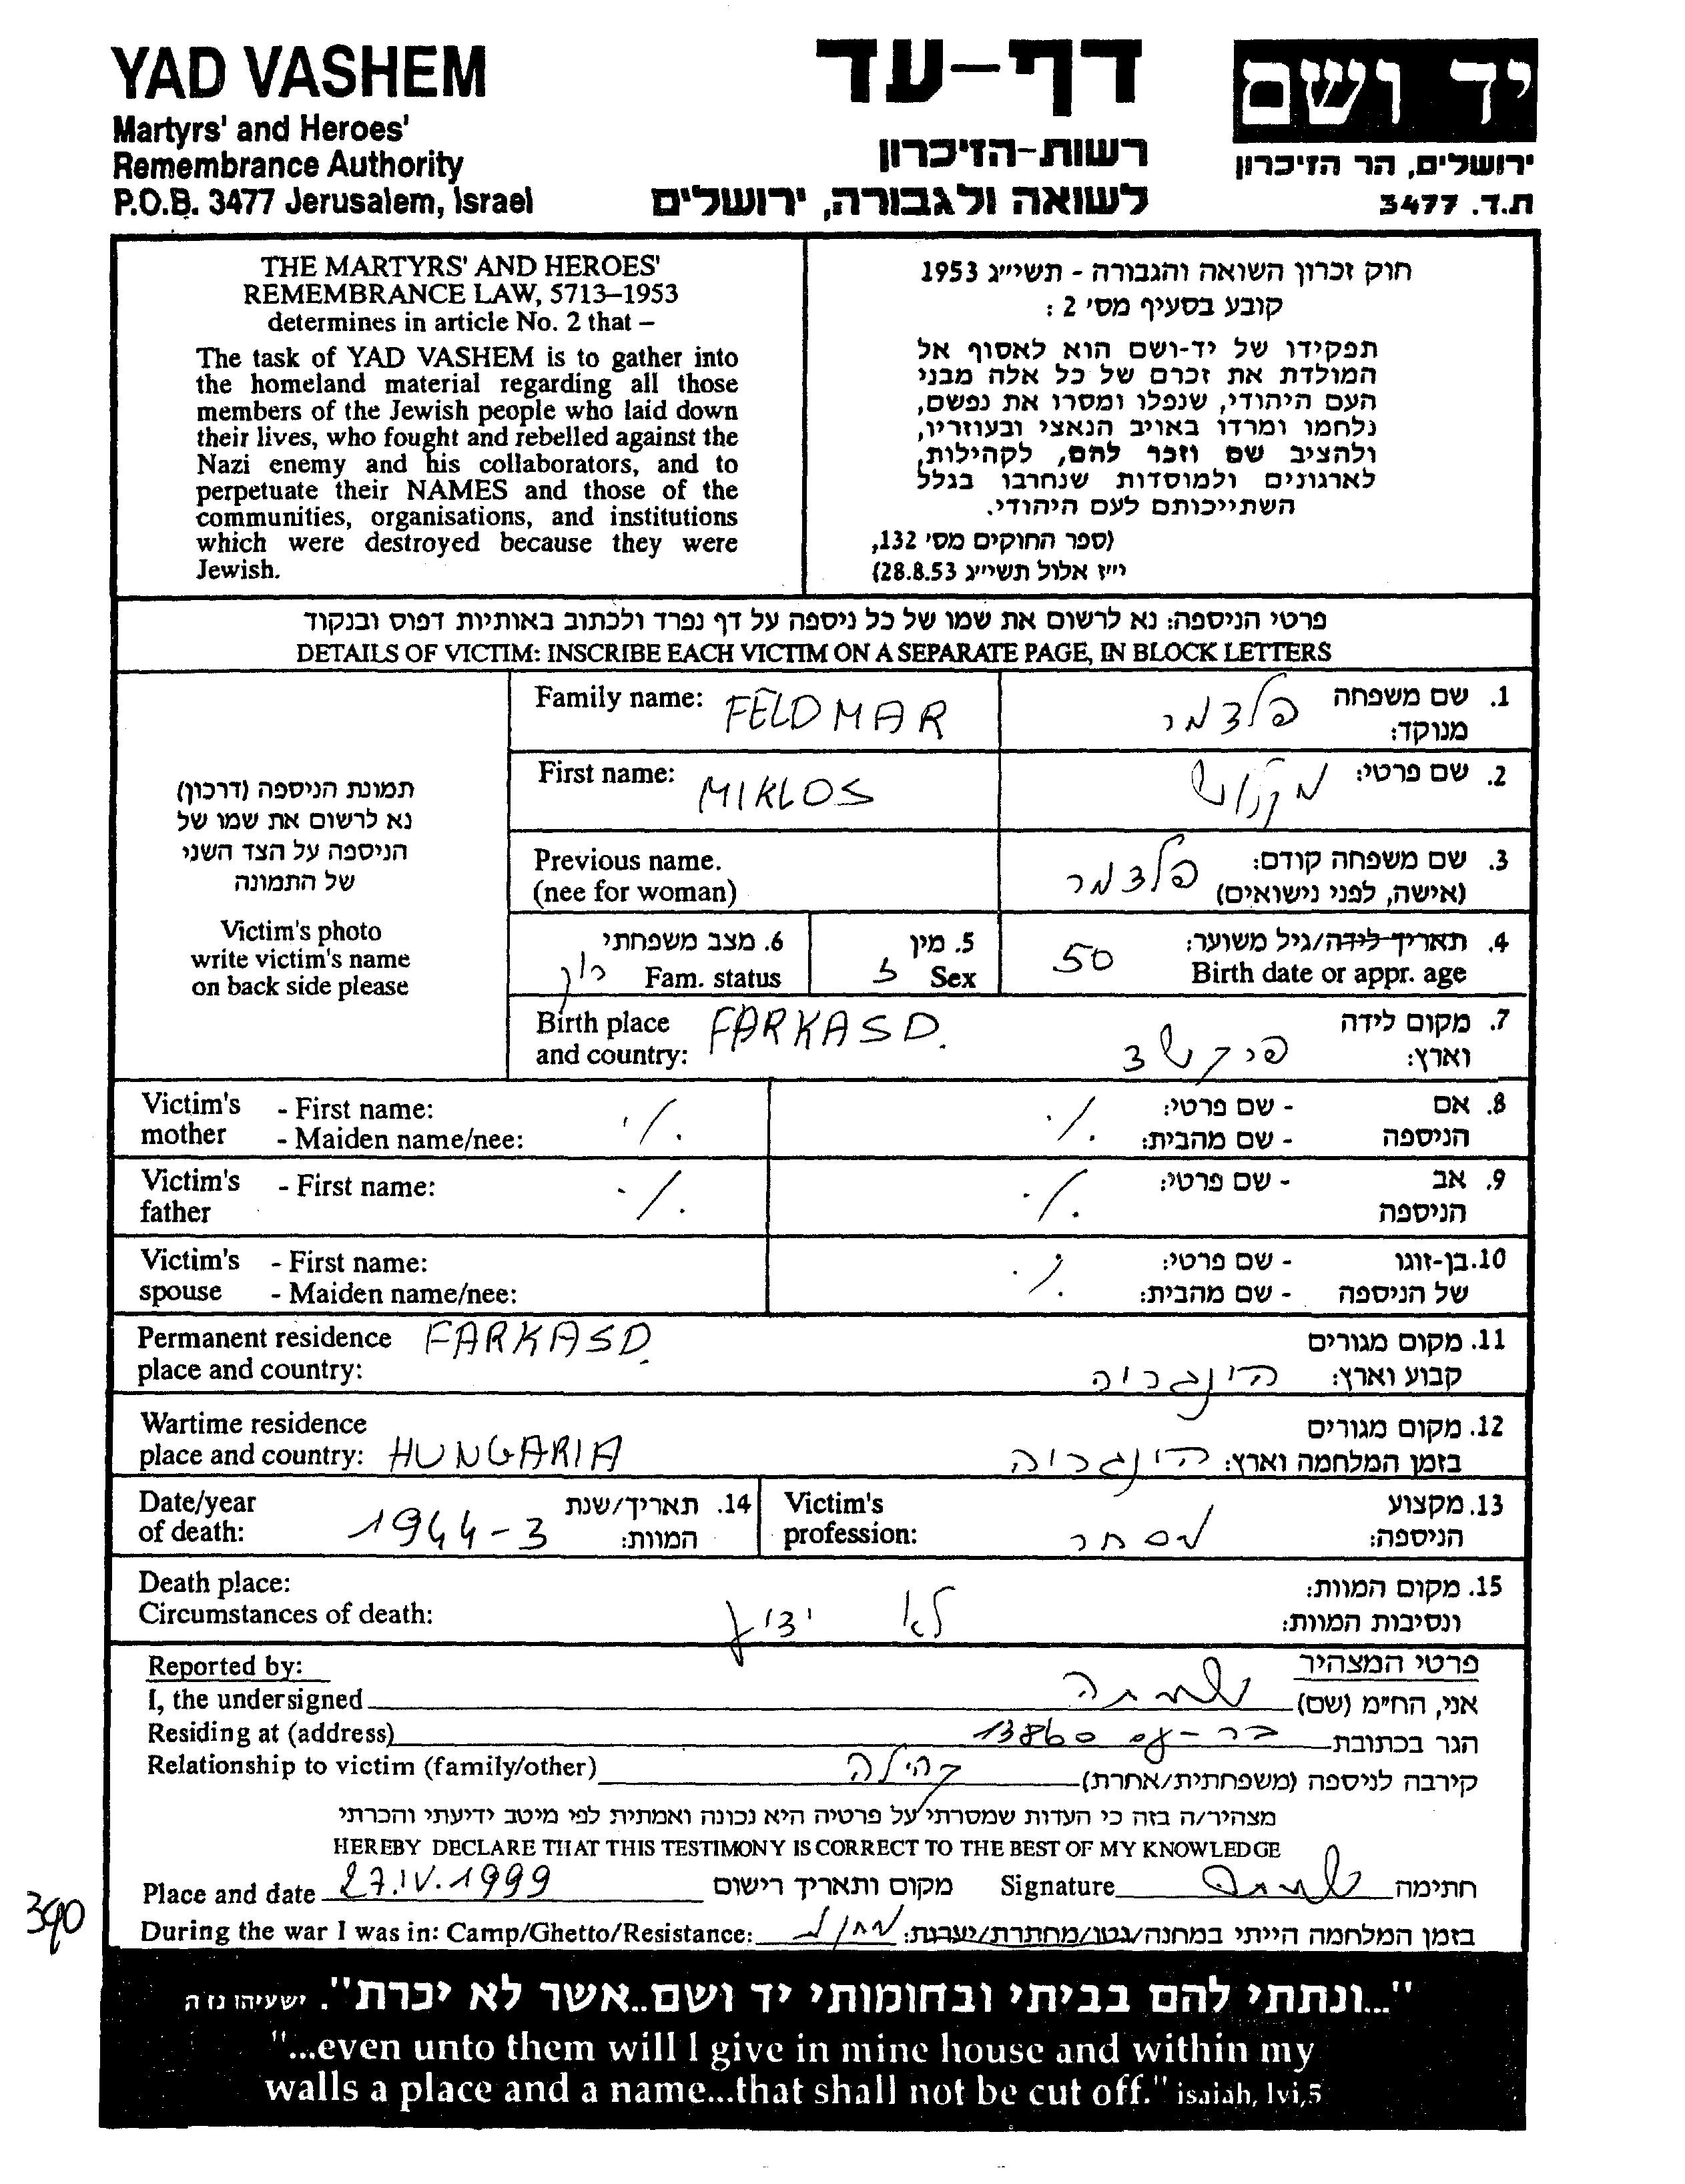 YAD VASHEM
Martyrs' and Heroes'
Remembrance Authority
P.O.B. 3477 Jerusalem, Israel
דף-עד
רשות-הזיכרון
לשואה ולגבורה, ירושלים
יד ושם
ירושלים, הר הזיכרון
ת.ד. 3477
THE MARTYRS' AND HEROES'
REMEMBRANCE LAW, 5713–1953
determines in article No. 2 that –
The task of YAD VASHEM is to gather into
the homeland material regarding all those
members of the Jewish people who laid down
their lives, who fought and rebelled against the
Nazi enemy and his collaborators, and to
perpetuate their NAMES and those of the
communities, organisations, and institutions
which were destroyed because they were
Jewish.
חוק זכרון השואה והגבורה - תשי״ג 1953
קובע בסעיף מס' 2 :
תפקידו של יד-ושם הוא לאסוף אל
המולדת את זכרם של כל אלה מבני
העם היהודי, שנפלו ומסרו את נפשם,
נלחמו ומרדו באויב הנאצי ובעוזריו,
ולהציב שם וזכר להם, לקהילות,
לארגונים ולמוסדות שנחרבו בגלל
השתייכותם לעם היהודי.
(ספר החוקים מס' 132,
י״ז אלול תשי״ג 28.8.53)
פרטי הניספה: נא לרשום את שמו של כל ניספה על דף נפרד ולכתוב באותיות דפוס ובנקוד
DETAILS OF VICTIM: INSCRIBE EACH VICTIM ON A SEPARATE PAGE, IN BLOCK LETTERS
תמונת הניספה (דרכון)
נא לרשום את שמו של
הניספה על הצד השני
של התמונה
Victim's photo
write victim's name
on back side please
Family name: FELDMAR פלדמר 1. שם משפחה
מנוקד:
First name: MIKLOS מקלוש 2. שם פרטי:
Previous name. פלדמר 3. שם משפחה קודם:
(nee for woman) (אישה, לפני נישואים)
6. מצב משפחתי 5. מין 4. תאריך לידה/גיל משוער:
Fam. status Sex ז 50 Birth date or appr. age
Birth place FARKASD. 7. מקום לידה
and country: וארץ:
Victim's - First name: ./. ./. - שם פרטי: 8. אם
mother - Maiden name/nee: - שם מהבית: הניספה
Victim's - First name: ./. ./. - שם פרטי: 9. אב
father הניספה
Victim's - First name: ./. - שם פרטי: 10. בן-זוגו
spouse - Maiden name/nee: - שם מהבית: של הניספה
Permanent residence FARKASD. 11. מקום מגורים
place and country: הונגריה קבוע וארץ:
Wartime residence 12. מקום מגורים
place and country: HUNGARIA הונגריה בזמן המלחמה וארץ:
Date/year 14. תאריך/שנת Victim's 13. מקצוע
of death: 1944-3 המוות: profession: מסחר הניספה:
Death place: 15. מקום המוות:
Circumstances of death: לא ידוע ונסיבות המוות:
Reported by: פרטי המצהיר
I, the undersigned אני, הח״מ (שם)
Residing at (address) 13860 הגר בכתובת
Relationship to victim (family/other) קהילה קירבה לניספה (משפחתית/אחרת)
מצהיר/ה בזה כי העדות שמסרתי על פרטיה היא נכונה ואמתית לפי מיטב ידיעתי והכרתי
HEREBY DECLARE THAT THIS TESTIMONY IS CORRECT TO THE BEST OF MY KNOWLEDGE
Place and date 27.IV.1999 מקום ותאריך רישום Signature חתימה
390
During the war I was in: Camp/Ghetto/Resistance: בזמן המלחמה הייתי במחנה/גטו/מחתרת/יערות:
"...ונתתי להם בביתי ובחומותי יד ושם..אשר לא יכרת". ישעיהו נו ה
"...even unto them will I give in mine house and within my
walls a place and a name...that shall not be cut off." isaiah, lvi,5